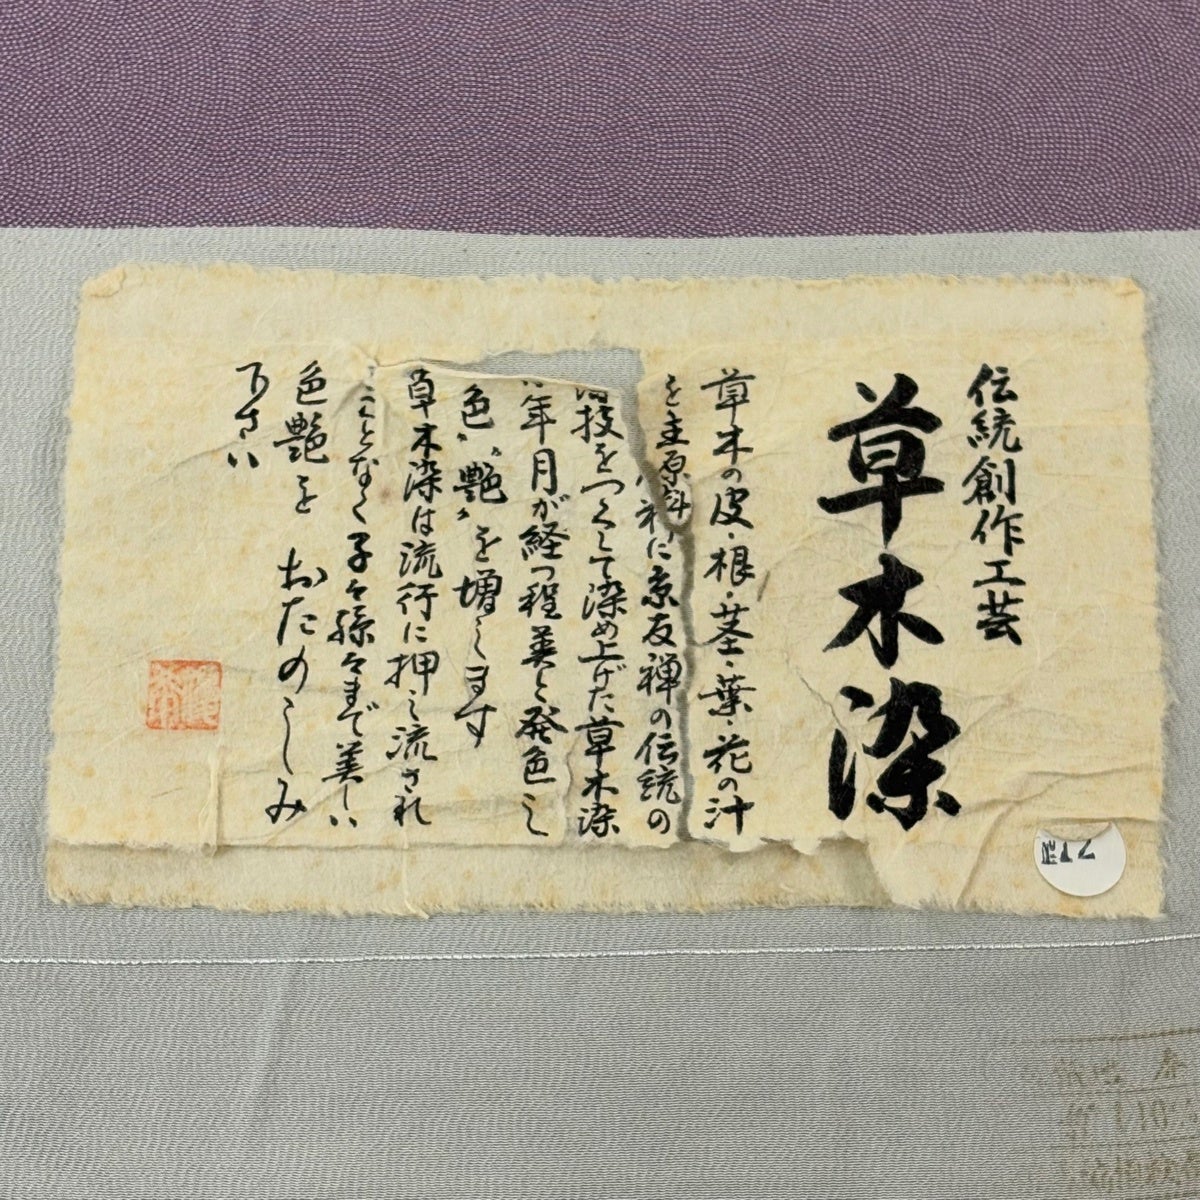 伝統創作工芸
草木染
草木の皮・根・茎・葉・花の汁
を主原料
に京友禅の伝統の
技をつくして染め上げた草木染
年月が経つ程美しく発色し
色〝艶〟を増します
草木染は流行に押し流され
ことなく子々孫々まで美しい
色艶を おたのしみ
下さい